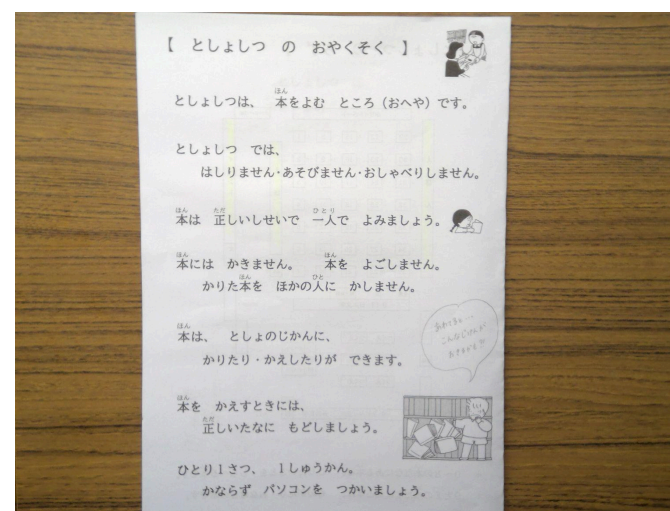 【 としょしつ の おやくそく 】
としょしつは、 本をよむ ところ（おへや）です。
としょしつ では、
はしりません・あそびません・おしゃべりしません。
本は 正しいしせいで 一人で よみましょう。
本には かきません。 本を よごしません。
かりた本を ほかの人に かしません。
本は、 としょのじかんに、
かりたり・かえしたりが できます。
あわてると…
こんなじけんが
おきるかも!?
本を かえすときには、
正しいたなに もどしましょう。
ひとり１さつ、 １しゅうかん。
かならず パソコンを つかいましょう。